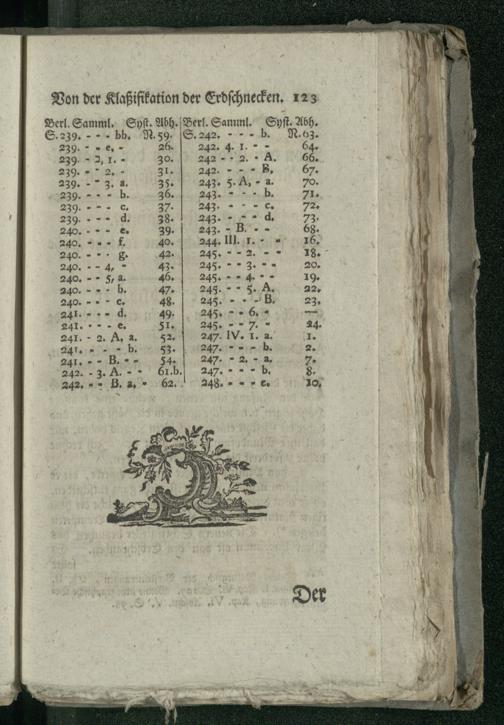 Von der Klaßifikation der Erdschnecken. 123
Berl. Samml. Syst. Abh.
S. 239. - - - bb. N. 59.
239. - - e, - 26.
239. - 2, 1. - 30.
239. - - 2. - 31.
239. - - 3. a. 35.
239. - - - b. 36.
239. - - - c. 37.
239. - - - d. 38.
240. - - - e. 39.
240. - - - f. 40.
240. - - - g. 42.
240. - - 4, - 43.
240. - - 5, a. 46.
240. - - - b. 47.
240. - - - c. 48.
241. - - - d. 49.
241. - - - e. 51.
241. - 2. A, a. 52.
241. - - - b. 53.
241. - - B. - - 54.
242. - 3. A. - - 61.b.
242. - - B. a, - 62.
Berl. Samml. Syst. Abh.
S. 242. - - - b. N. 63.
242. 4. 1. - - 64.
242 - - 2. - A. 66.
242. - - - B. 67.
243. 5. A, - a. 70.
243. - - - b. 71.
243. - - - c. 72.
243. - - - d. 73.
243. - B. - - 68.
244. III. 1. - - 16.
245. - - 2. - - 18.
245. - - 3. - - 20.
245. - - 4. - - 19.
245. - - 5. A. 22.
245. - - - B. 23.
245. - - 6. - —
245. - - 7. - 24.
247. IV. 1. a. 1.
247. - - - b. 2.
247. - 2. - a. 7.
247. - - - b. 8.
248. - - - e. 10.
Der